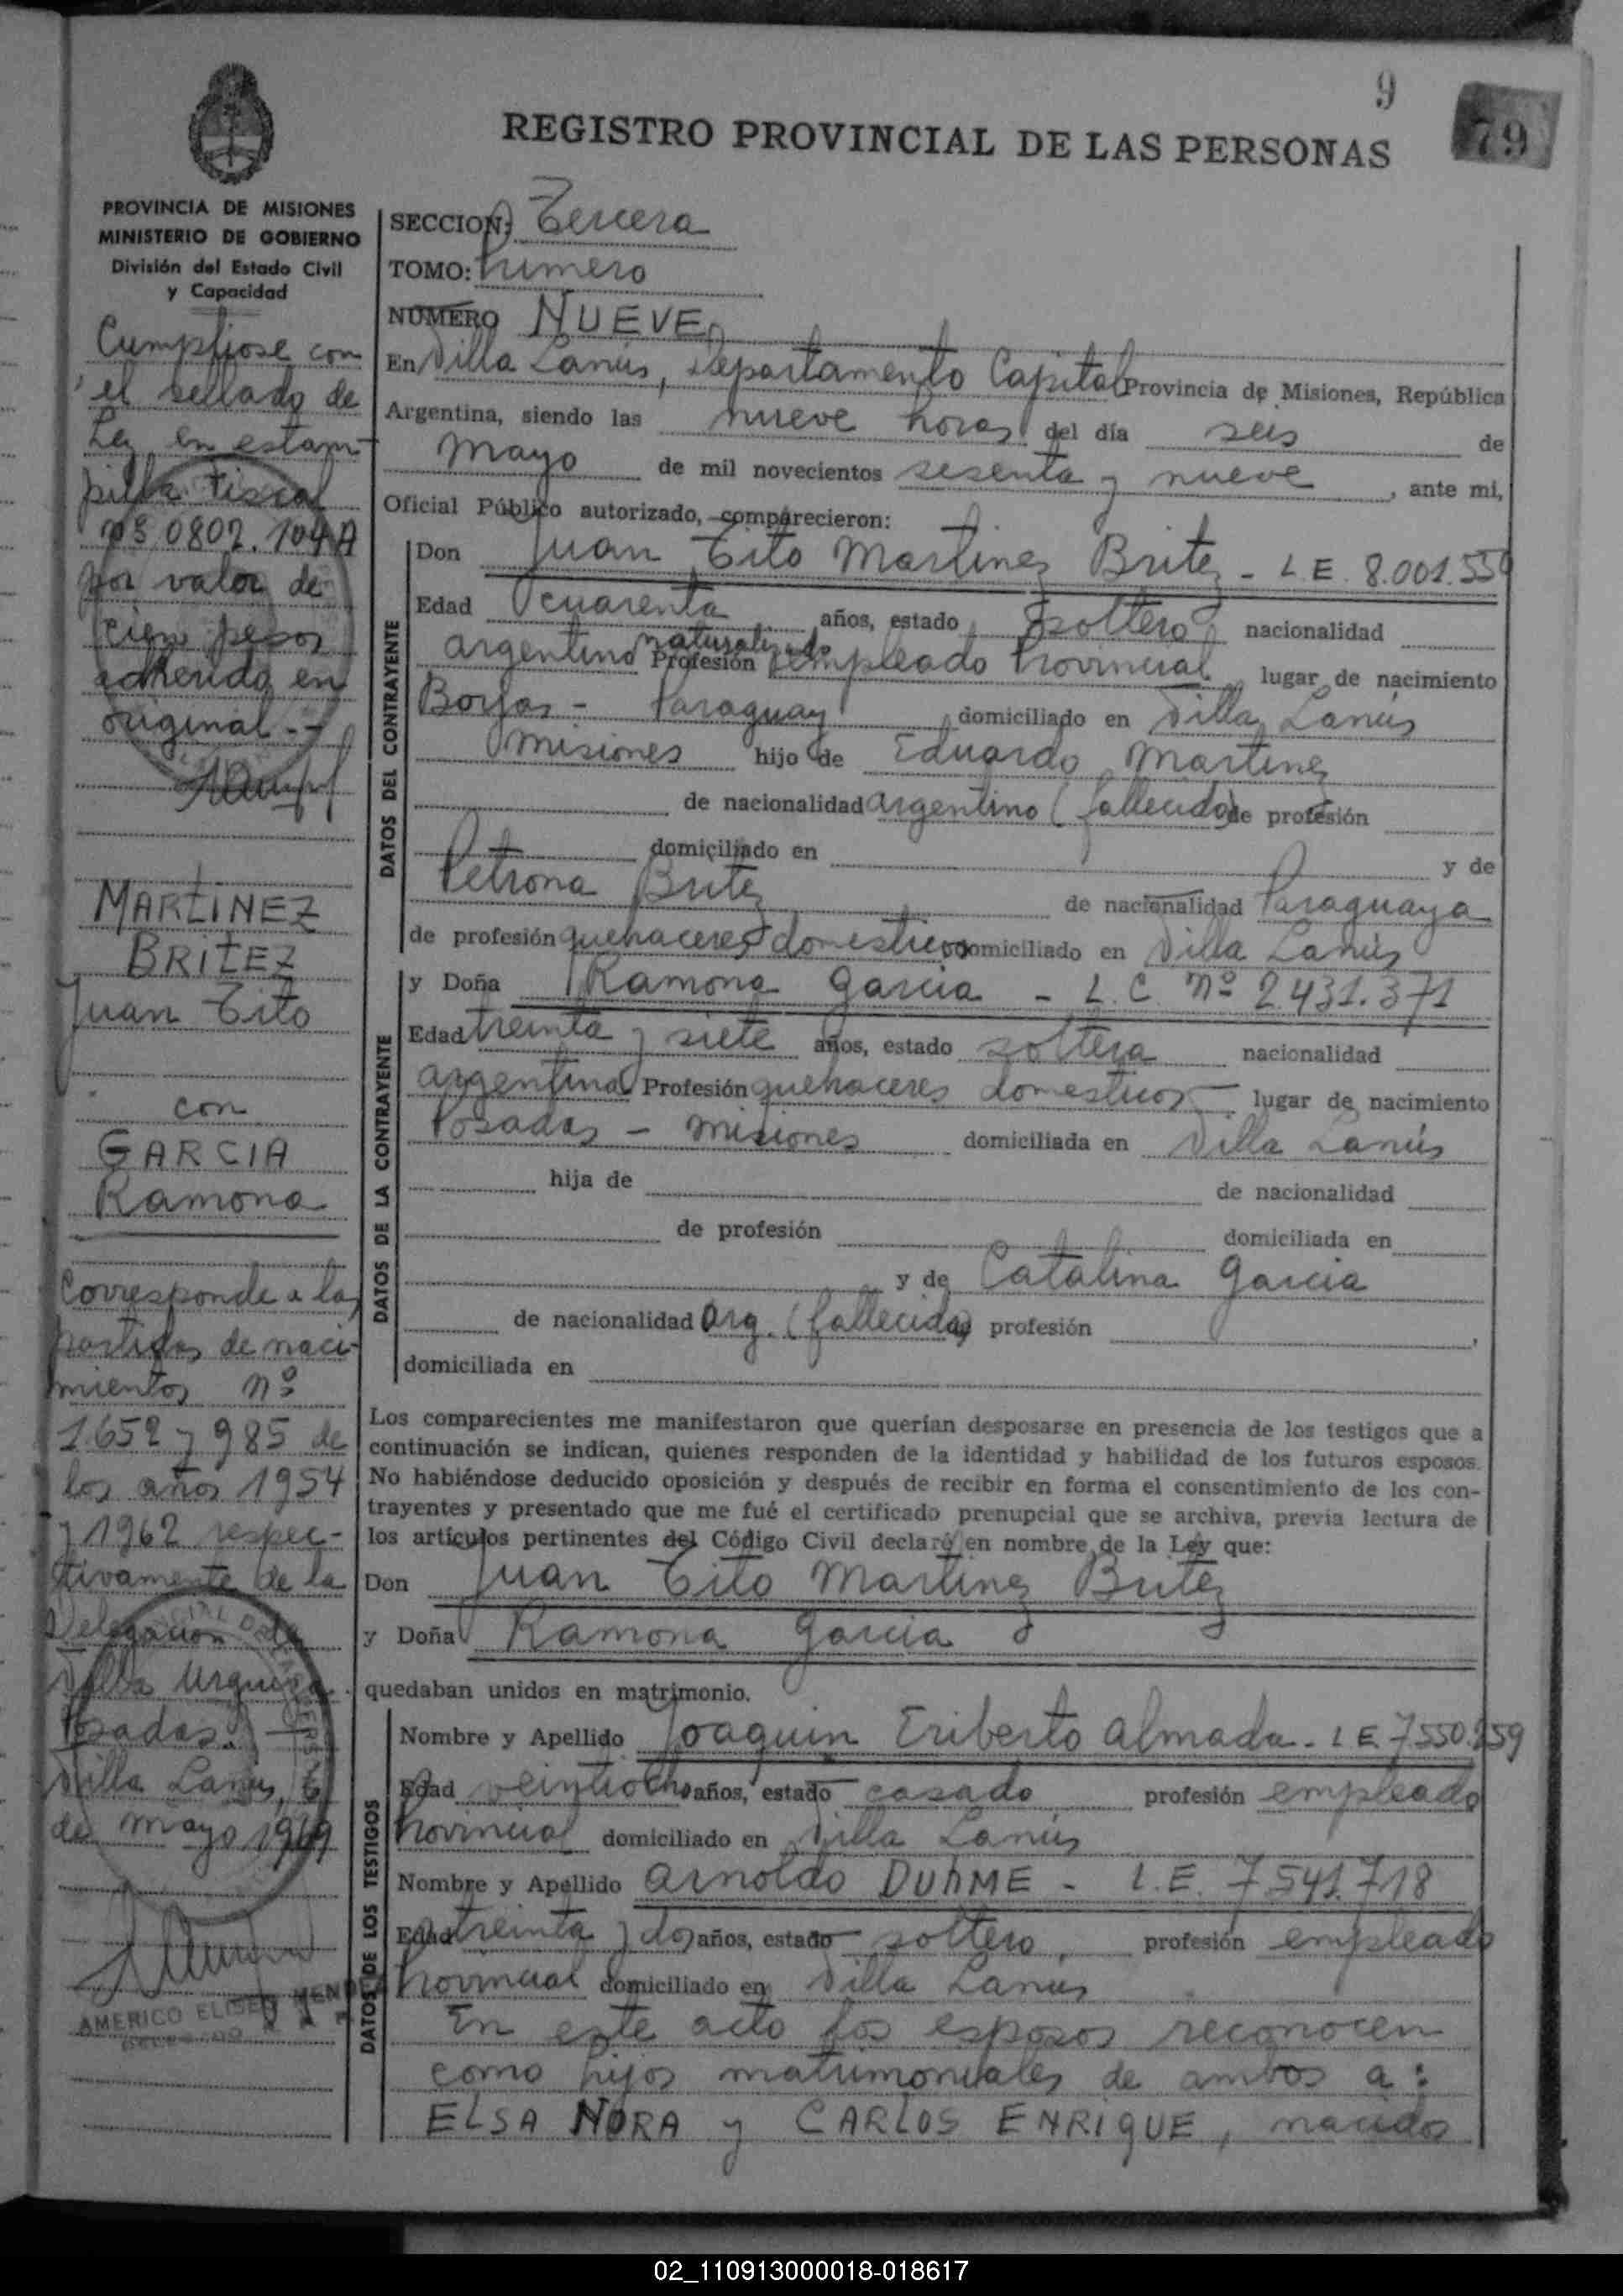 9
79
REGISTRO PROVINCIAL DE LAS PERSONAS
PROVINCIA DE MISIONES
MINISTERIO DE GOBIERNO
División del Estado Civil
y Capacidad
Cumplióse con
el sellado de
Ley en estam-
pilla fiscal
nº 0802.104A
por valor de
cien pesos
adherida en
original.--
MARTINEZ
BRITEZ
Juan Tito
con
GARCIA
Ramona
Corresponde a las
partidas de naci-
mientos nº
1.652 y 985 de
los años 1954
y 1962 respec-
tivamente de la
Delegación de
Villa Urquiza
Posadas.
Villa Lanús, 6
de mayo 1969
AMERICO ELISEO MENDEZ
DELEGADO
SECCION: Tercera
TOMO: Primero
NUMERO NUEVE
En Villa Lanús, Departamento Capital Provincia de Misiones, República
Argentina, siendo las nueve horas del día seis de
mayo de mil novecientos sesenta y nueve, ante mi,
Oficial Público autorizado, comparecieron:
DATOS DEL CONTRAYENTE
Don Juan Tito Martinez Britez - L.E. 8.001.550
Edad cuarenta años, estado soltero nacionalidad
argentino naturalizado Profesión empleado Provincial lugar de nacimiento
Borjas - Paraguay domiciliado en Villa Lanús
Misiones hijo de Eduardo Martinez
de nacionalidad argentino (fallecido) de profesión
domiciliado en y de
Petrona Britez de nacionalidad Paraguaya
de profesión quehaceres domesticos domiciliado en Villa Lanús
DATOS DE LA CONTRAYENTE
y Doña Ramona Garcia - L.C. nº 2.431.371
Edad treinta y siete años, estado soltera nacionalidad
argentina Profesión quehaceres domesticos lugar de nacimiento
Posadas - Misiones domiciliada en Villa Lanús
hija de de nacionalidad
de profesión domiciliada en
y de Catalina Garcia
de nacionalidad Arg. (fallecida) profesión ,
domiciliada en
Los comparecientes me manifestaron que querían desposarse en presencia de los testigos que a
continuación se indican, quienes responden de la identidad y habilidad de los futuros esposos.
No habiéndose deducido oposición y después de recibir en forma el consentimiento de los con-
trayentes y presentado que me fué el certificado prenupcial que se archiva, previa lectura de
los artículos pertinentes del Código Civil declaré en nombre de la Ley que:
Don Juan Tito Martinez Britez
y Doña Ramona Garcia
quedaban unidos en matrimonio.
DATOS DE LOS TESTIGOS
Nombre y Apellido Joaquin Eriberto Almada - L.E. 7.550.259
Edad veintiocho años, estado casado profesión empleado
Provincial domiciliado en Villa Lanús
Nombre y Apellido Arnoldo DUHME - L.E. 7.541.718
Edad treinta y dos años, estado soltero, profesión empleado
Provincial domiciliado en Villa Lanús
En este acto los esposos reconocen
como hijos matrimoniales de ambos a:
ELSA NORA y CARLOS ENRIQUE, nacidos
02_110913000018-018617